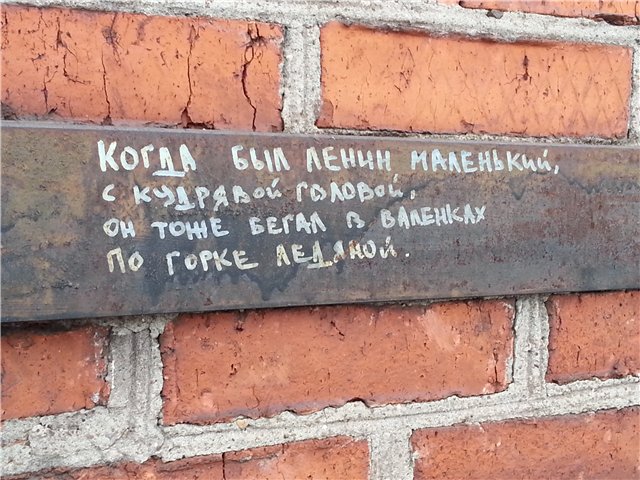 КОГДА БЫЛ ЛЕНИН МАЛЕНЬКИЙ,
С КУДРЯВОЙ ГОЛОВОЙ,
ОН ТОЖЕ БЕГАЛ В ВАЛЕНКАХ
ПО ГОРКЕ ЛЕДЯНОЙ.